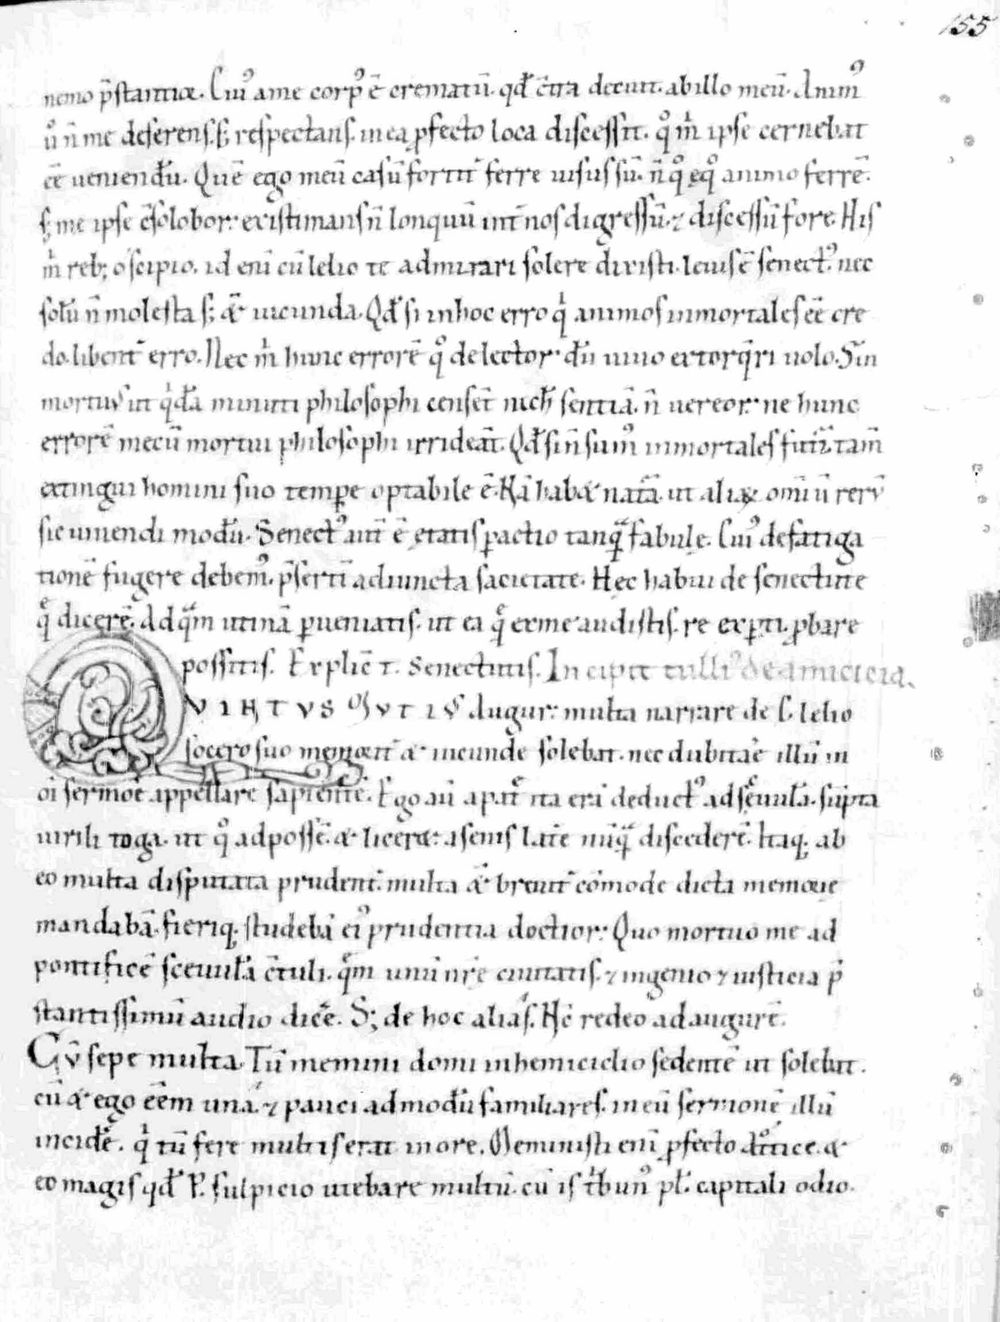 155
nemo p̄stantior. Cui⁹ a me corp⁹ ē crematū. qđ c̄tra decuit. ab illo meū. Anim⁹
ū n̄ me deserens. s; respectans. in ea ꝓfecto loca discessit. qᵒ m̄ ipse cernebat
eē ueniendū. Quē ego meū casū fortit̄ ferre uisus sū. n̄ qᵒ eqᵒ animo ferrē.
s; me ipse c̄solobor: existimans n̄ lonquū int̄ nos digressū. ⁊ discessū fore. His
m̄ reb; o scipio. id enī cū lelio te admirari solere dixisti. leuis ē senect⁹. nec
solū n̄ molesta s; & iucunda. Qđ si in hoc erro qⁱ animos inmortales eē cre
do. libent̄ erro. Nec m̄ hunc errorē qᵒ delector: dū uiuo extorq̄ri uolo. Sin
mortuus ut qⁱdā minuti philosophi censet̄ nich̄ sentiā. n̄ uereor: ne hunc
errorē mecū mortui philosophi irrideāt. Qđ si n̄ sum⁹ inmortales futuri. tam̄
extingui homini suo tempore optabile ē. Nā habet natā. ut aliarum omiū rerū
sic uiuendi modū. Senect⁹ aut̄ ē etatis ꝑactio tanqᵃ fabule. Cui⁹ defatiga
tionē fugere debem⁹. p̄sertī adiuncta sacietate. Hec habui de senectute
qᵉ dicerē. Ad qᵃm utinā ꝑueniatis. ut ea qᵉ ex me audistis. re exꝑti ꝓbare
possitis. Explic̄ t. Senectutis. Incipit tulli⁹ de amicicia.
QVINTVS MVTIVS Augur: multa narrare de C. lelio
socero suo memorit̄ & iucunde solebat. nec dubitare illū in
oī sermoē appellare sapientē. Ego aū a pat̄ ita erā deduct⁹ ad sceuulā. sūpta
uirili toga. ut qᵒ ad possē. & liceret: a senis lat̄e nūqᵃ discederē. Itaq; ab
eo multa disputata prudent̄. multa & breuit̄ cōmode dicta memorie
mandabā. fieriq; studebā ei⁹ prudentia doctior: Quo mortuo me ad
pontificē sceuulā c̄tuli. qᵃm unū nr̄e ciuitatis. ⁊ ingenio ⁊ iusticia p̄
stantissimū audio dicē. S; de hoc alias. Nc̄ redeo ad augurē.
Cū sepe multa. Tū memini domi in hemiciclio sedentē ut solebat.
cū & ego eēm una. ⁊ pauci admodū familiares. in eū sermonē illū
incidē. qⁱ tū fere multis erat in ore. Meministi enī ꝓfecto attice. &
eo magis qđ P. sulpicio utebare multū. cū is t̄bun⁹ pl̄. capitali odio.